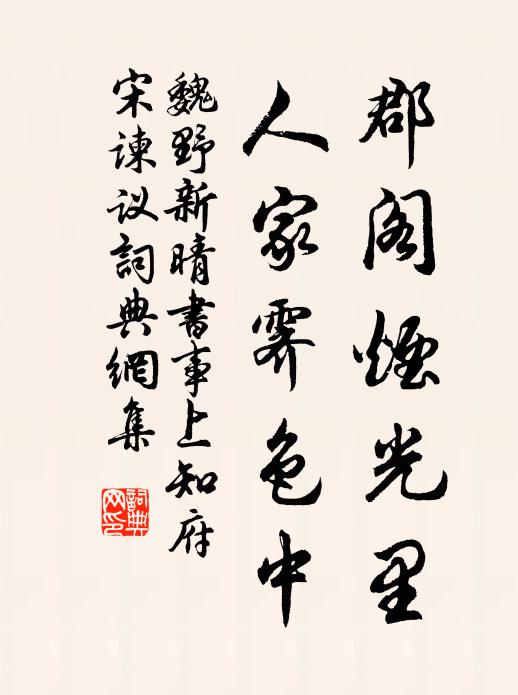 郡阁煙光里
人家霁色中
魏野新晴書事上知府
宋谏议詞典網集
詞典网印